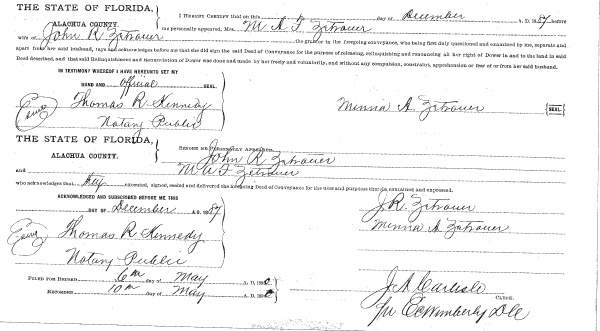 THE STATE OF FLORIDA,
ALACHUA COUNTY.
I HEREBY CERTIFY that on this day of December A. D. 1887 before
me personally appeared, Mrs. M A F Zetrouer
wife of John R Zetrouer the grantor in the foregoing conveyance, who being first duly questioned and examined by me, separate and
apart from her said husband, says and acknowledge before me that she did sign the said Deed of Conveyance for the purpose of releasing, relinquishing and renouncing all her right of Dower in and to the land in said
Deed described, and that said Relinquishment and Renunciation of Dower was done and made by her freely and voluntarily, and without any compulsion, constraint, apprehension or fear of or from her said husband.
IN TESTIMONY WHEREOF I HAVE HEREUNTO SET MY
HAND AND official SEAL.
Thomas R Kennedy
Notary Public
Minna A. Zetrouer SEAL
THE STATE OF FLORIDA,
ALACHUA COUNTY.
BEFORE ME PERSONALLY APPEARED,
John R Zetrouer
and M A F Zetrouer
who acknowledged that they executed, signed, sealed and delivered the foregoing Deed of Conveyance for the uses and purposes therein contained and expressed.
ACKNOWLEDGED AND SUBSCRIBED BEFORE ME THIS
DAY OF December A.D. 1887
Thomas R Kennedy
Notary Public
J. R. Zetrouer
Minna A Zetrouer
FILED FOR RECORD 6th day of May A. D.
RECORDED 10th day of May A. D.
J A Carlisle
CLERK.
Pr E C Wimberly D C